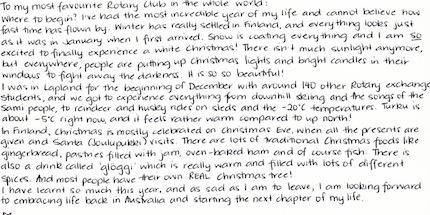 To my most favourite Rotary Club in the whole world:
Where to begin? I've had the most incredible year of my life and cannot believe how
fast time has flown by. Winter has really settled in Finland, and everything looks just
as it was in January when I first arrived. Snow is coating everything and I am so
excited to finally experience a white Christmas! There isn't much sunlight anymore,
but everywhere, people are putting up Christmas lights and bright candles in their
windows to fight away the darkness. It is so so beautiful!
I was in Lapland for the beginning of December with around 140 other Rotary exchange
students, and we got to experience everything from downhill skiing and the songs of the
Sami people, to reindeer and husky rides on sleds and the -20°C temperatures. Turku is
about -5°C right now, and it feels rather warm compared to up north!
In Finland, Christmas is mostly celebrated on Christmas Eve, when all the presents are
given and Santa (Joulupukki) visits. There are lots of traditional Christmas foods like
gingerbread, pastries filled with jam, oven-baked ham and of course fish. There is
also a drink called 'glöggi' which is really warm and filled with lots of different
spices. And most people have their own REAL Christmas tree!
I have learnt so much this year, and as sad as I am to leave, I am looking forward
to embracing life back in Australia and starting the next chapter of my life.